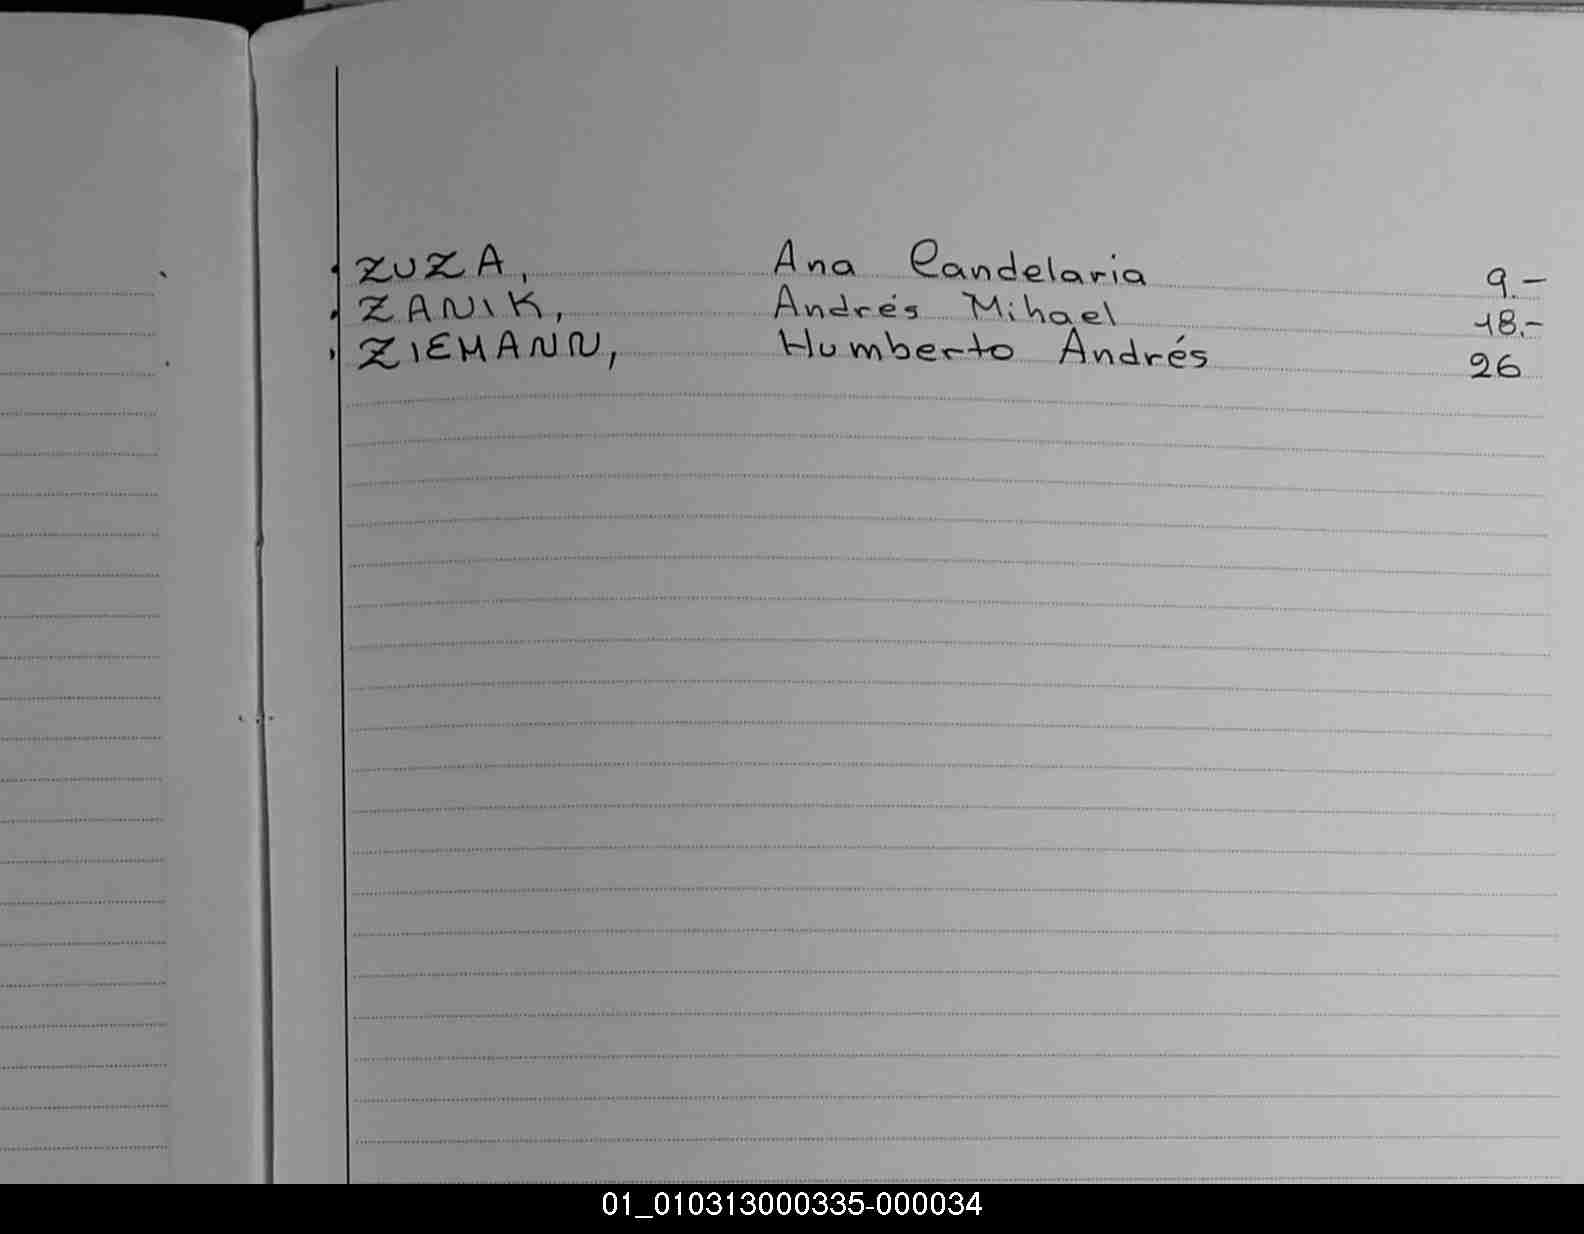 ZUZA, Ana Candelaria 9.-
ZANIK, Andrés Mihael 18.-
ZIEMANN, Humberto Andrés 26
01_010313000335-000034